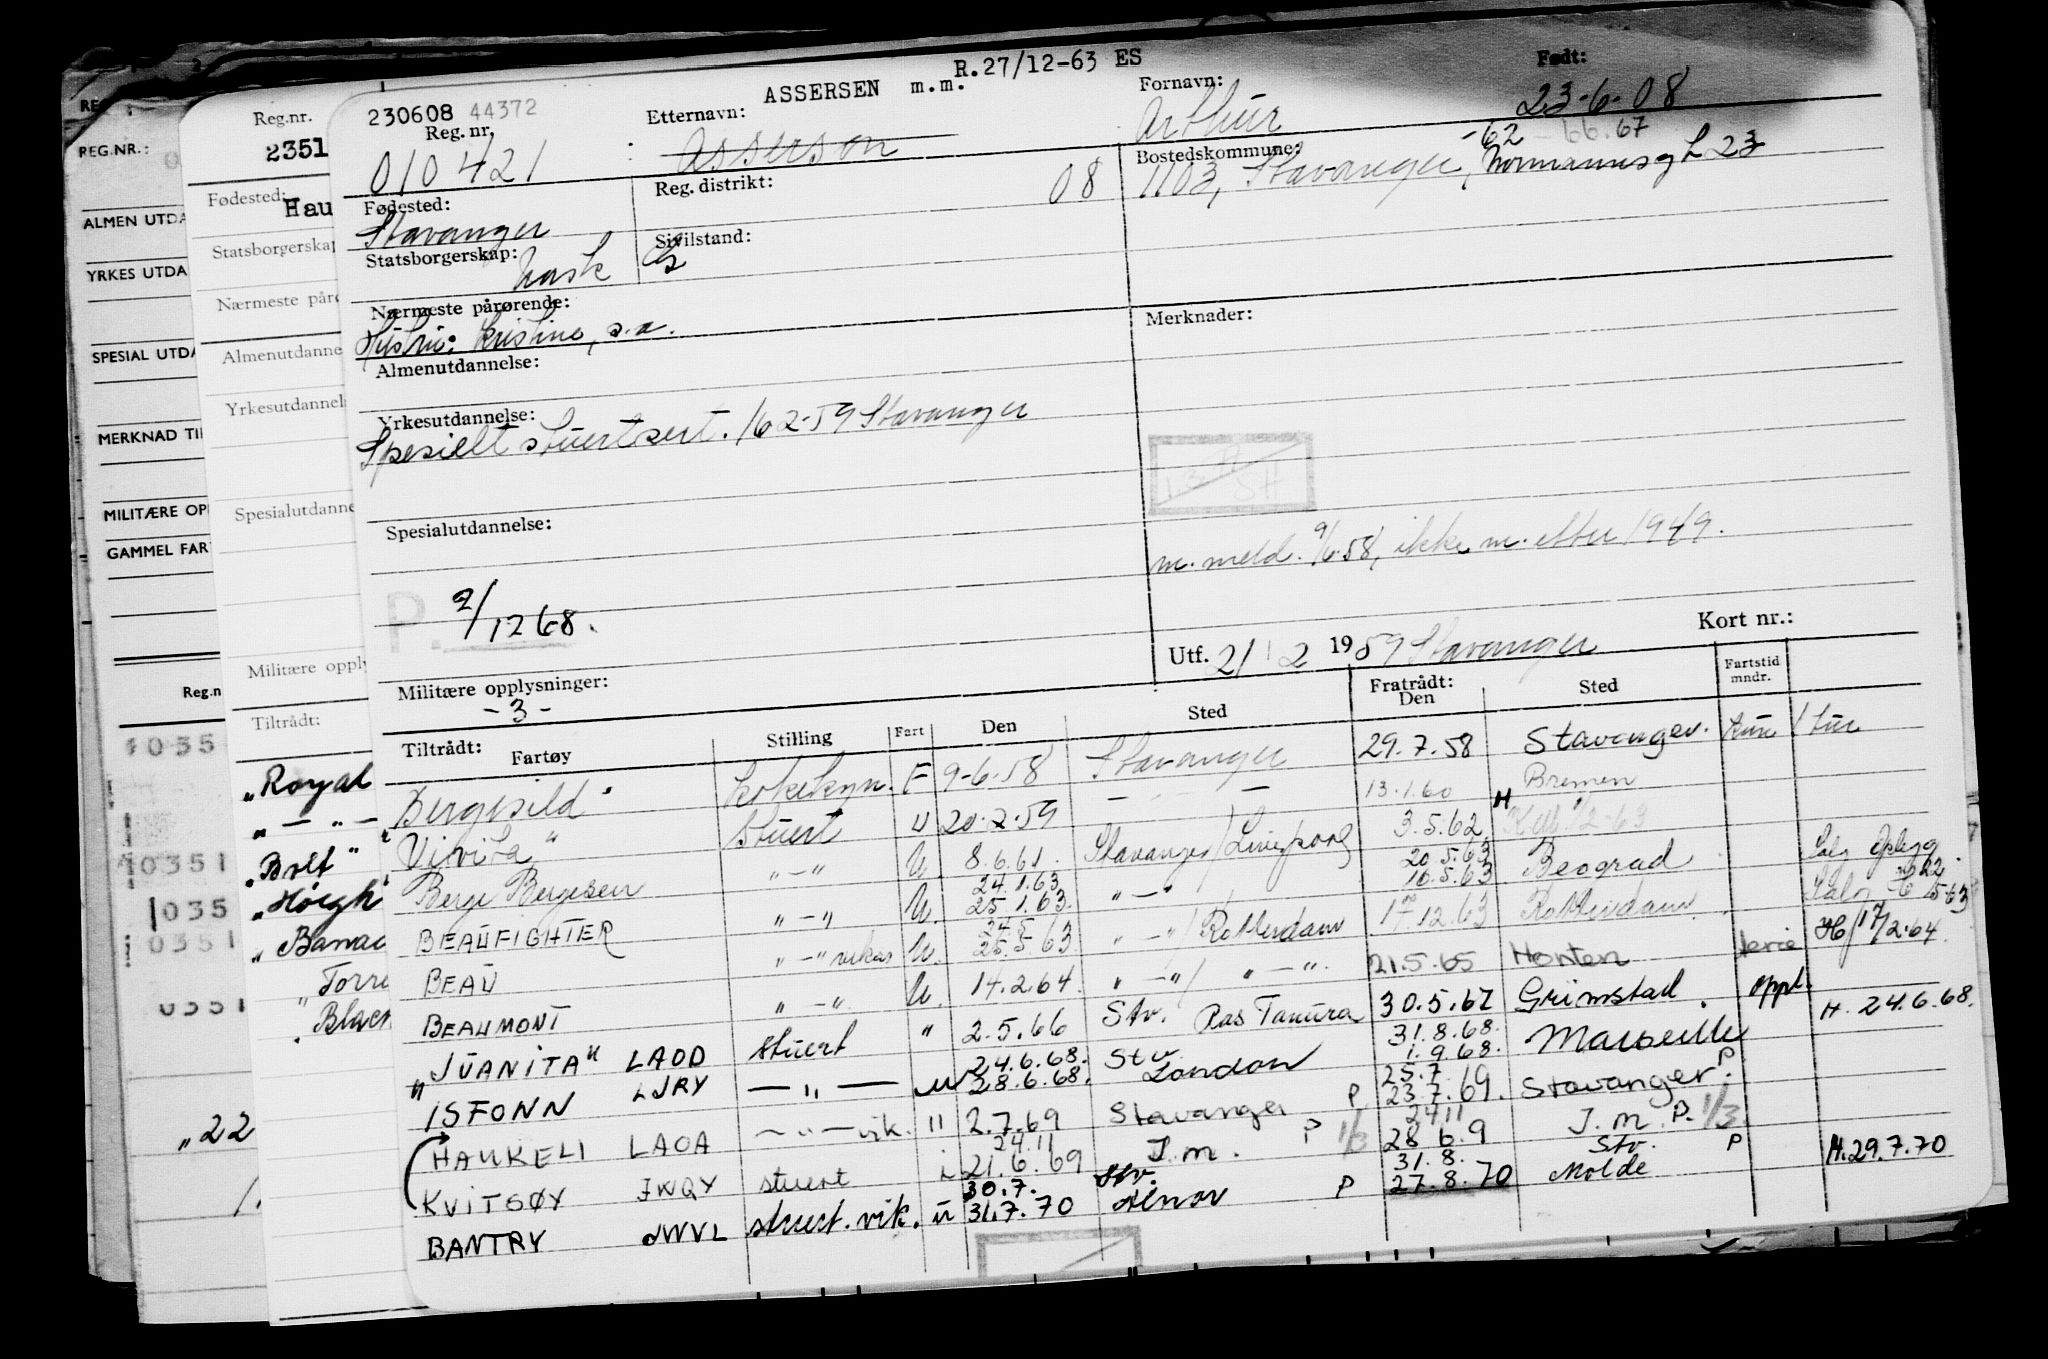 ASSERSEN m.m. R.27/12-63 ES
230608 44372
Reg. nr.
010421
Etternavn:
Asserson
Fornavn:
Arthur
Født:
23-6-08
Reg. distrikt:
08
Bostedskommune:
-62 -66.67
1103, Stavanger,
Fødested:
Stavanger
Statsborgerskap:
norsk
Sivilstand:
G
Nærmeste pårørende:
Hustru: Kristine, s.a.
Merknader:
Almenutdannelse:
Yrkesutdannelse:
Spesielt stuertsert. 162-59 Stavanger
Spesialutdannelse:
m. meld. 9/6.58, ikke m. etter 1949.
P. 2/1268.
Utf. 2/12 1959 Stavanger
Kort nr.:
Militære opplysninger:
-3-
Tiltrådt: Fartøy Stilling Fart Den Sted Fratrådt: Den Sted Fartstid mndr.
Bergesild Kokekyn. F 9-6-58 Stavanger 29.7.58 Stavanger.
Vivita" Stuert U 20.2.59 — " — 13.1.60 Bremen
Berge Bergesen " — " U. 8.6.61. Stavanger/Liverpool 3.5.62
BEAUFIGHTER " — " U. 24.1.63 25.1.63. " — " 20.5.63 16.5.63 Beograd
BEAU " — " vikar U. 24.5 25.5.63 " — "/ Rotterdam 17.12.63 Rotterdam
BEAUMONT " — " U. 14.2.64. " — "/ " — ". 21.5.65 Horten
"JUANITA" LAOD Stuert " 2.5.66 Stv. Ras Tanura 30.5.67 Grimstad. oppl.
ISFONN LJRY — " — U 24.6.68. 28.6.68. Stv London 31.8.68. 1.9.68. Marseille H. 24.6.68.
HAUKELI LAOA — " — vik. " 2.7.69 Stavanger P 25.7 23.7.69. Stavanger. P
KVITSØY JWQY stuert i 24.11 21.6.69 J.m. P 1/3 24.11 28.6.9 J.m. P. 1/3
BANTRY JWVL stuert. vik. u 30.7. 31.7.70 Stv. P 31.8. 27.8.70 Stv. Molde P H.29.7.70
Reg.nr.
2351
Fødested:
Hau
Statsborgerska
Nærmeste pår
Almenutdanne
Yrkesutdannel
Spesialutdanne
Militære oppl
Tiltrådt:
"Royal
" — " —
"Bolt"
"Høegh
"Torr
"22
REG.NR.:
ALMEN UTDA
YRKES UTDA
SPESIAL UTDA
MERKNAD TI
MILITÆRE OP
GAMMEL FAR
Reg.n
1035
10351
1035
0351
0351